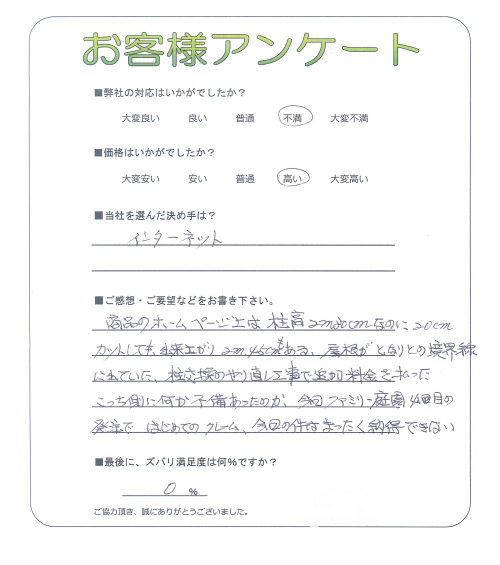 お客様アンケート
■弊社の対応はいかがでしたか？
大変良い 良い 普通 不満 大変不満
■価格はいかがでしたか？
大変安い 安い 普通 高い 大変高い
■当社を選んだ決め手は？
インターネット
■ご感想・ご要望などをお書き下さい。
商品のホームページ上は 柱高 2m30cmなのに 20cm
カットしても、出来上がり 2m45cmもある、屋根がとなりとの境界線
に出ていた、柱交換のやり直し工事で追加料金を払った
こっち側に何か予備あったのか、今回ファミリー庭園4回目の
発注で はじめてのクレーム、今回の件はまったく納得できない
■最後に、ズバリ満足度は何％ですか？
0 ％
ご協力頂き、誠にありがとうございました。